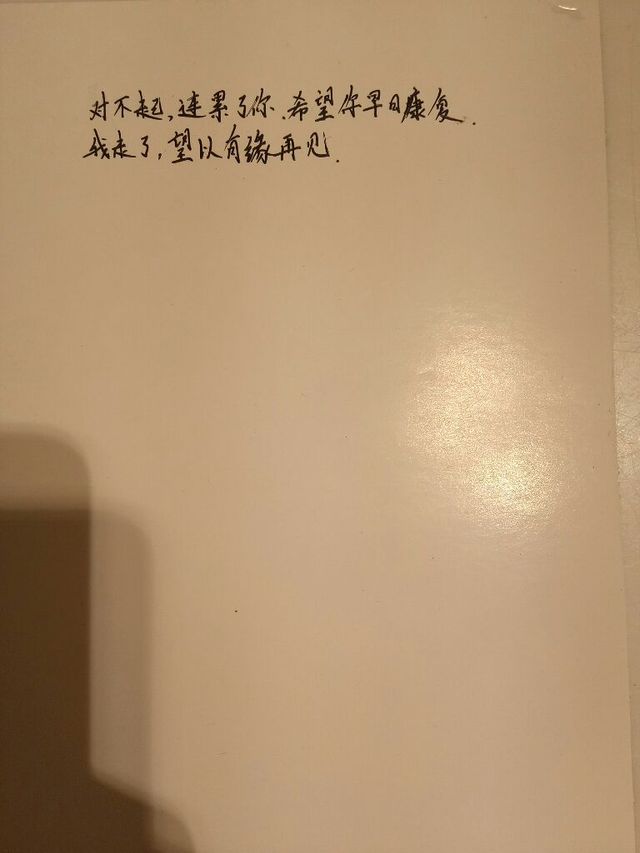 对不起,连累了你.希望你早日康复.
我走了,望以有缘再见.